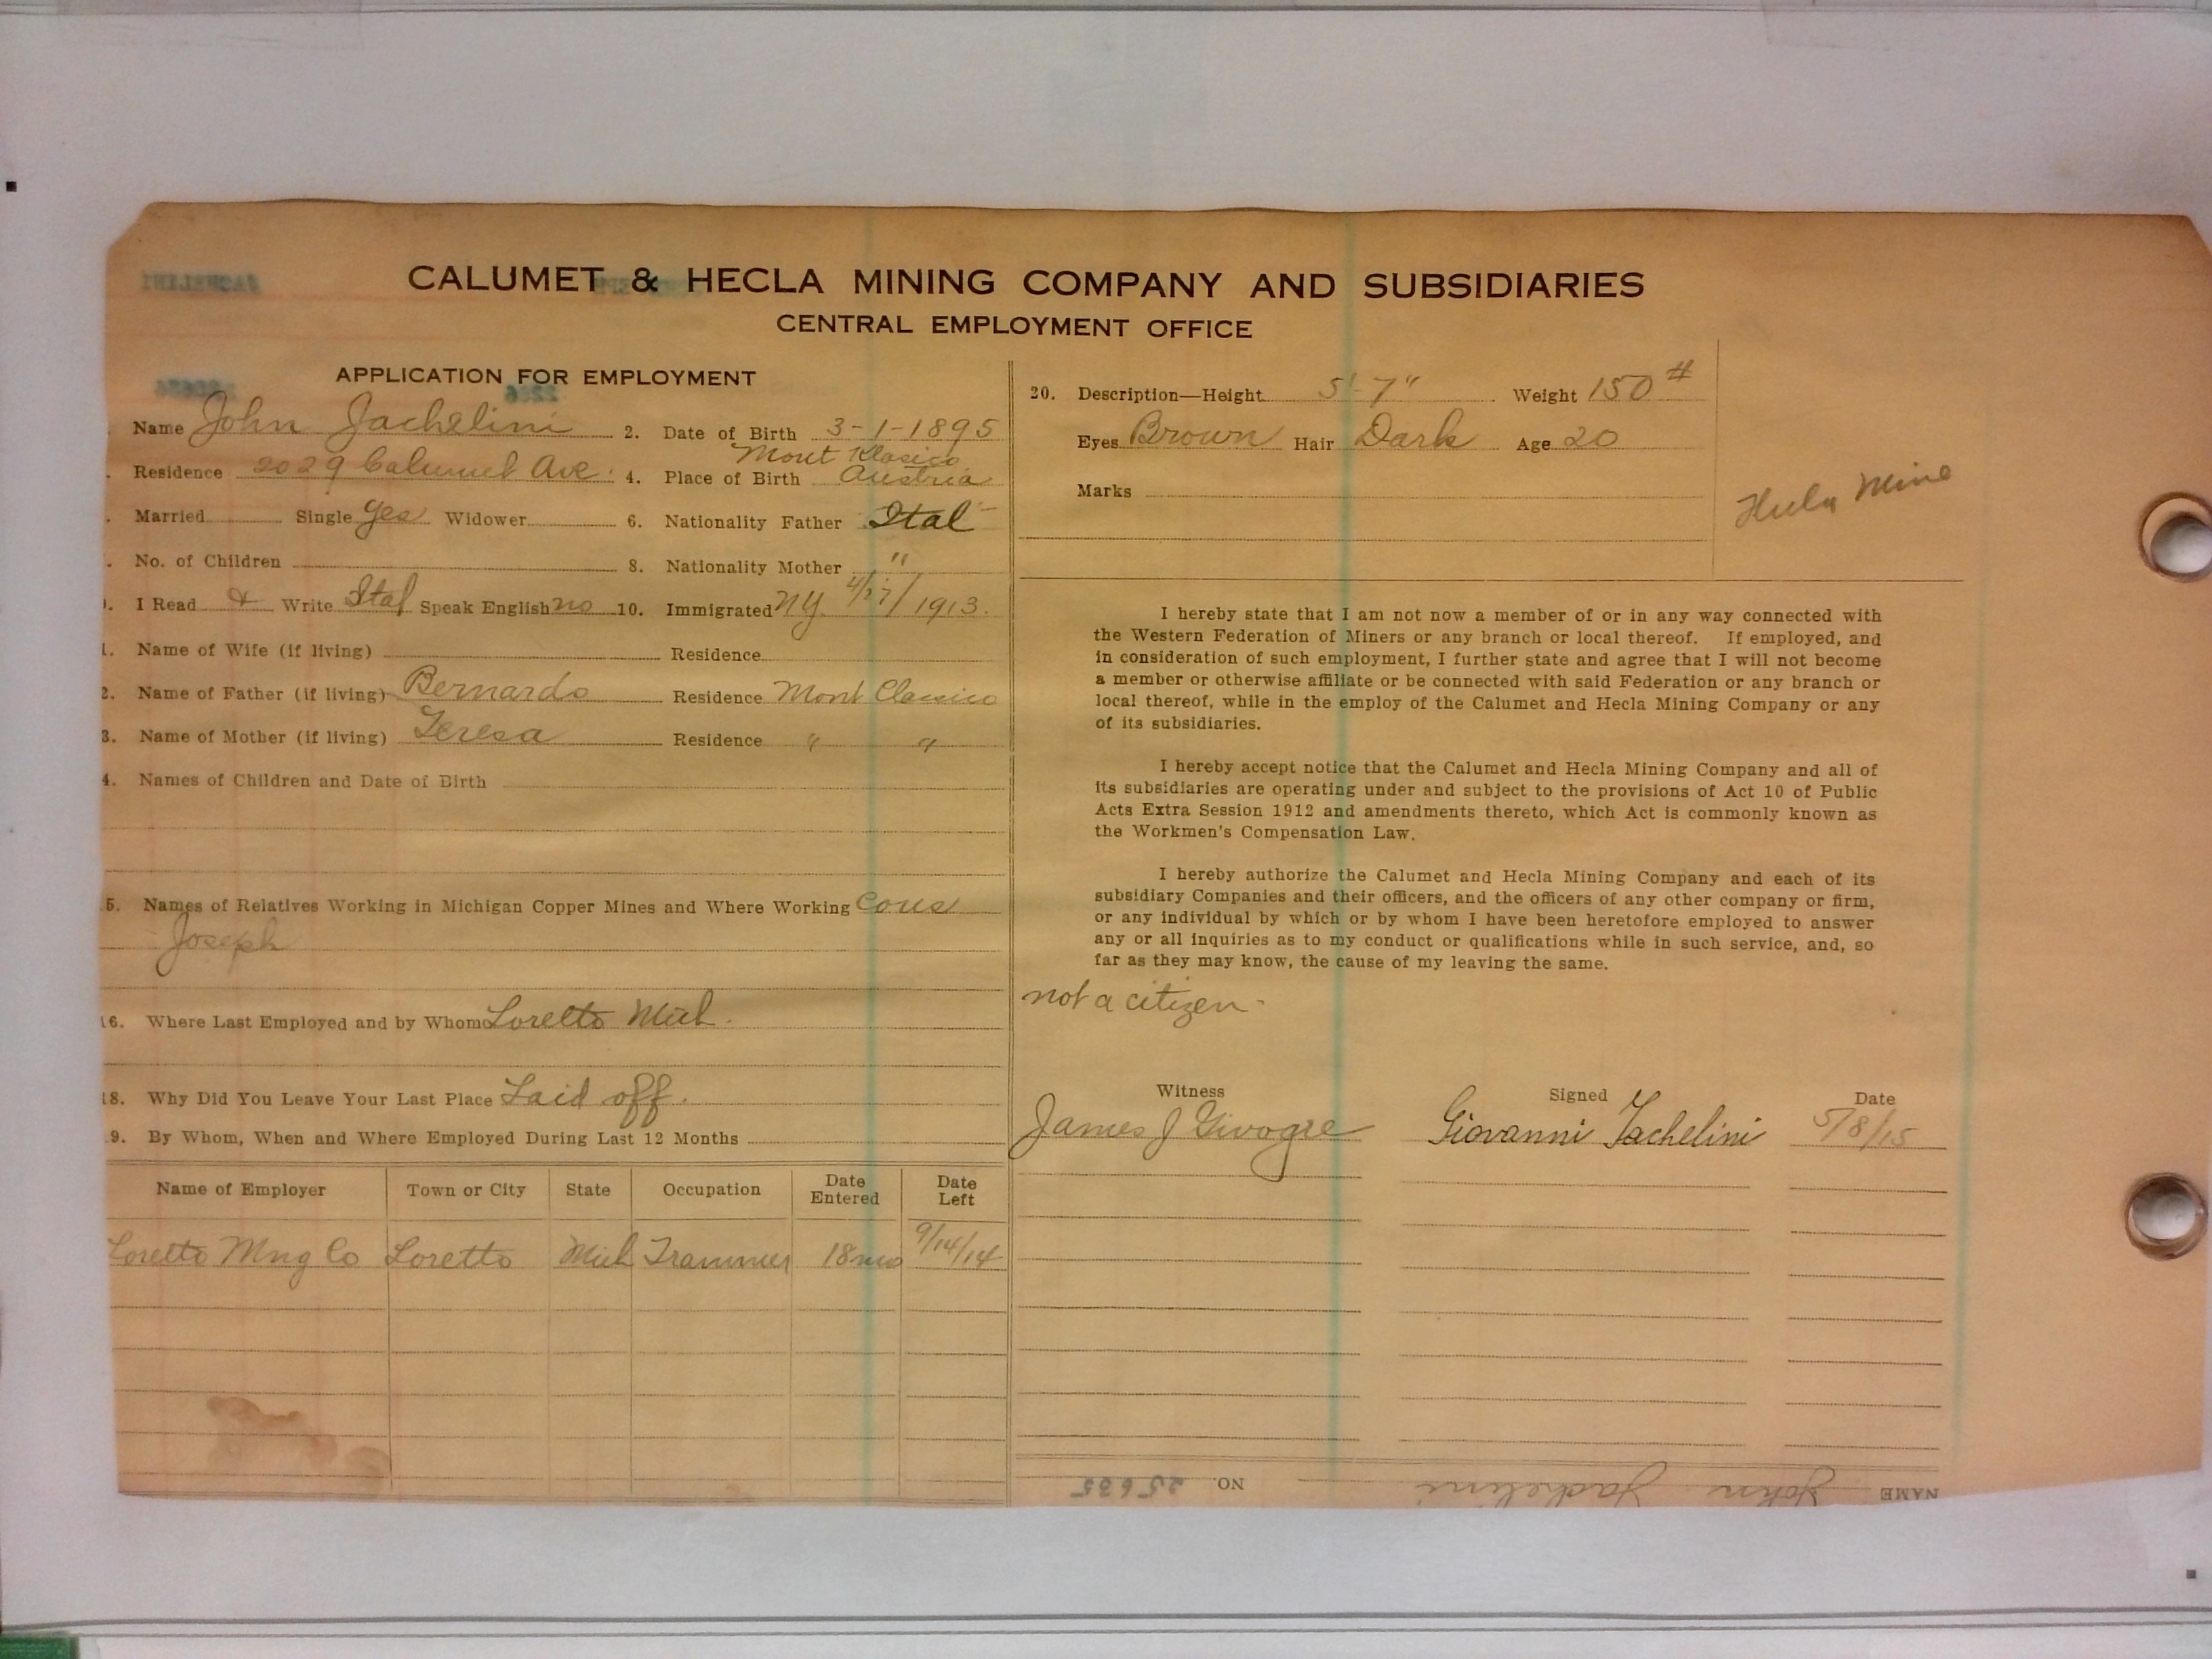 CALUMET & HECLA MINING COMPANY AND SUBSIDIARIES
CENTRAL EMPLOYMENT OFFICE
APPLICATION FOR EMPLOYMENT
Name John Jachelini 2. Date of Birth 3-1-1895
Mont Klasico
Residence 2029 Calumet Ave. 4. Place of Birth Austria
Married Single yes Widower 6. Nationality Father Ital
No. of Children 8. Nationality Mother "
I Read & Write Ital Speak English no 10. Immigrated NY 4/27/1913.
1. Name of Wife (if living) Residence
2. Name of Father (if living) Bernardo Residence Mont Classico
3. Name of Mother (if living) Teresa Residence " "
4. Names of Children and Date of Birth
5. Names of Relatives Working in Michigan Copper Mines and Where Working Cous
Joseph
16. Where Last Employed and by Whom Loretto Mich.
18. Why Did You Leave Your Last Place Laid off.
9. By Whom, When and Where Employed During Last 12 Months
Name of Employer Town or City State Occupation Date Entered Date Left
Loretto Mng Co Loretto Mich Trammer 18 mo 9/14/14
20. Description—Height 5'-7" Weight 150 #
Eyes Brown Hair Dark Age 20
Marks
Hecla Mine
I hereby state that I am not now a member of or in any way connected with
the Western Federation of Miners or any branch or local thereof. If employed, and
in consideration of such employment, I further state and agree that I will not become
a member or otherwise affiliate or be connected with said Federation or any branch or
local thereof, while in the employ of the Calumet and Hecla Mining Company or any
of its subsidiaries.
I hereby accept notice that the Calumet and Hecla Mining Company and all of
its subsidiaries are operating under and subject to the provisions of Act 10 of Public
Acts Extra Session 1912 and amendments thereto, which Act is commonly known as
the Workmen's Compensation Law.
I hereby authorize the Calumet and Hecla Mining Company and each of its
subsidiary Companies and their officers, and the officers of any other company or firm,
or any individual by which or by whom I have been heretofore employed to answer
any or all inquiries as to my conduct or qualifications while in such service, and, so
far as they may know, the cause of my leaving the same.
not a citizen-
Witness Signed Date
James J Givogre Giovanni Jachelini 5/8/15
NAME John Jachelini NO. 25635